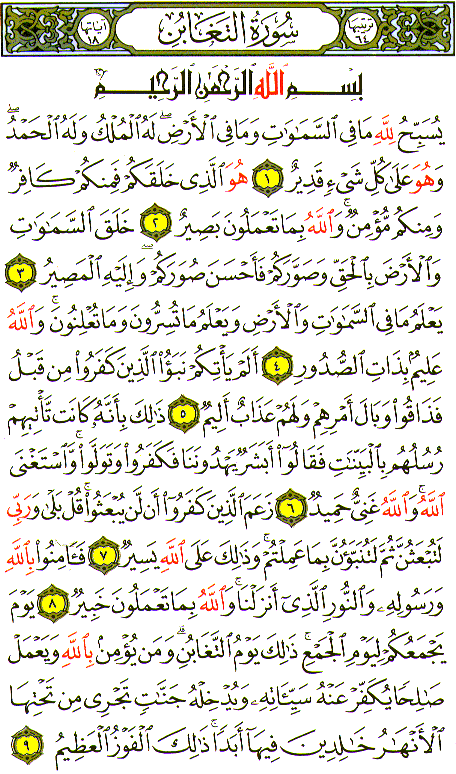 ترتيبها ٦٤ سُورَةُ التَّغَابُن آياتها ١٨
بِسْمِ اللَّهِ الرَّحْمَٰنِ الرَّحِيمِ
يُسَبِّحُ لِلَّهِ مَا فِي السَّمَٰوَٰتِ وَمَا فِي الْأَرْضِ ۖ لَهُ الْمُلْكُ وَلَهُ الْحَمْدُ ۖ
وَهُوَ عَلَىٰ كُلِّ شَيْءٍ قَدِيرٌ ١ هُوَ الَّذِي خَلَقَكُمْ فَمِنكُمْ كَافِرٌ
وَمِنكُم مُّؤْمِنٌ ۚ وَاللَّهُ بِمَا تَعْمَلُونَ بَصِيرٌ ٢ خَلَقَ السَّمَٰوَٰتِ
وَالْأَرْضَ بِالْحَقِّ وَصَوَّرَكُمْ فَأَحْسَنَ صُوَرَكُمْ ۖ وَإِلَيْهِ الْمَصِيرُ ٣
يَعْلَمُ مَا فِي السَّمَٰوَٰتِ وَالْأَرْضِ وَيَعْلَمُ مَا تُسِرُّونَ وَمَا تُعْلِنُونَ ۚ وَاللَّهُ
عَلِيمٌ بِذَاتِ الصُّدُورِ ٤ أَلَمْ يَأْتِكُمْ نَبَؤُا۟ الَّذِينَ كَفَرُوا۟ مِن قَبْلُ
فَذَاقُوا۟ وَبَالَ أَمْرِهِمْ وَلَهُمْ عَذَابٌ أَلِيمٌ ٥ ذَٰلِكَ بِأَنَّهُ كَانَت تَّأْتِيهِمْ
رُسُلُهُم بِالْبَيِّنَٰتِ فَقَالُوٓا۟ أَبَشَرٌ يَهْدُونَنَا فَكَفَرُوا۟ وَتَوَلَّوا۟ ۚ وَّاسْتَغْنَى
اللَّهُ ۚ وَاللَّهُ غَنِيٌّ حَمِيدٌ ٦ زَعَمَ الَّذِينَ كَفَرُوٓا۟ أَن لَّن يُبْعَثُوا۟ ۚ قُلْ بَلَىٰ وَرَبِّي
لَتُبْعَثُنَّ ثُمَّ لَتُنَبَّؤُنَّ بِمَا عَمِلْتُمْ ۚ وَذَٰلِكَ عَلَى اللَّهِ يَسِيرٌ ٧ فَـَٔامِنُوا۟ بِاللَّهِ
وَرَسُولِهِ وَالنُّورِ الَّذِيٓ أَنزَلْنَا ۚ وَاللَّهُ بِمَا تَعْمَلُونَ خَبِيرٌ ٨ يَوْمَ
يَجْمَعُكُمْ لِيَوْمِ الْجَمْعِ ۖ ذَٰلِكَ يَوْمُ التَّغَابُنِ ۗ وَمَن يُؤْمِنۢ بِاللَّهِ وَيَعْمَلْ
صَٰلِحًا يُكَفِّرْ عَنْهُ سَيِّـَٔاتِهِ وَيُدْخِلْهُ جَنَّٰتٍ تَجْرِي مِن تَحْتِهَا
الْأَنْهَٰرُ خَٰلِدِينَ فِيهَآ أَبَدًا ۚ ذَٰلِكَ الْفَوْزُ الْعَظِيمُ ٩